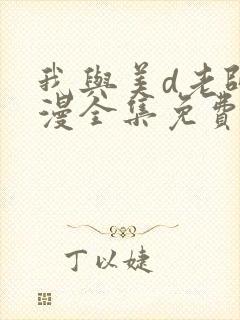 我与美d老師
漫全集免費
丁以婕